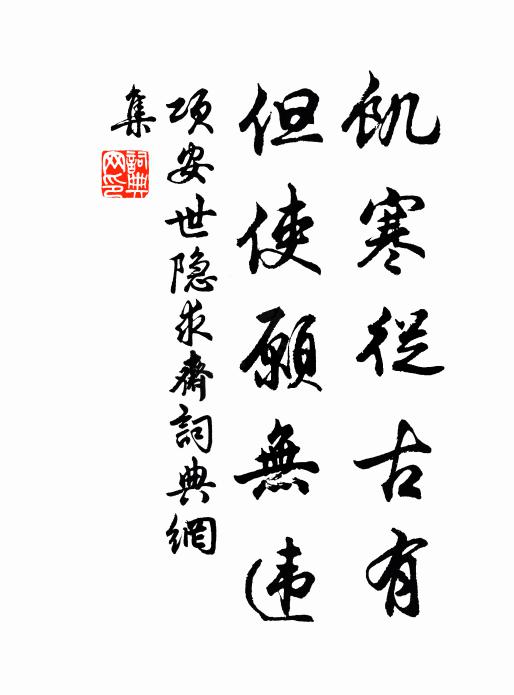 飢寒從古有
但使願無违
项安世隐求齋詞典網
集
詞典网印